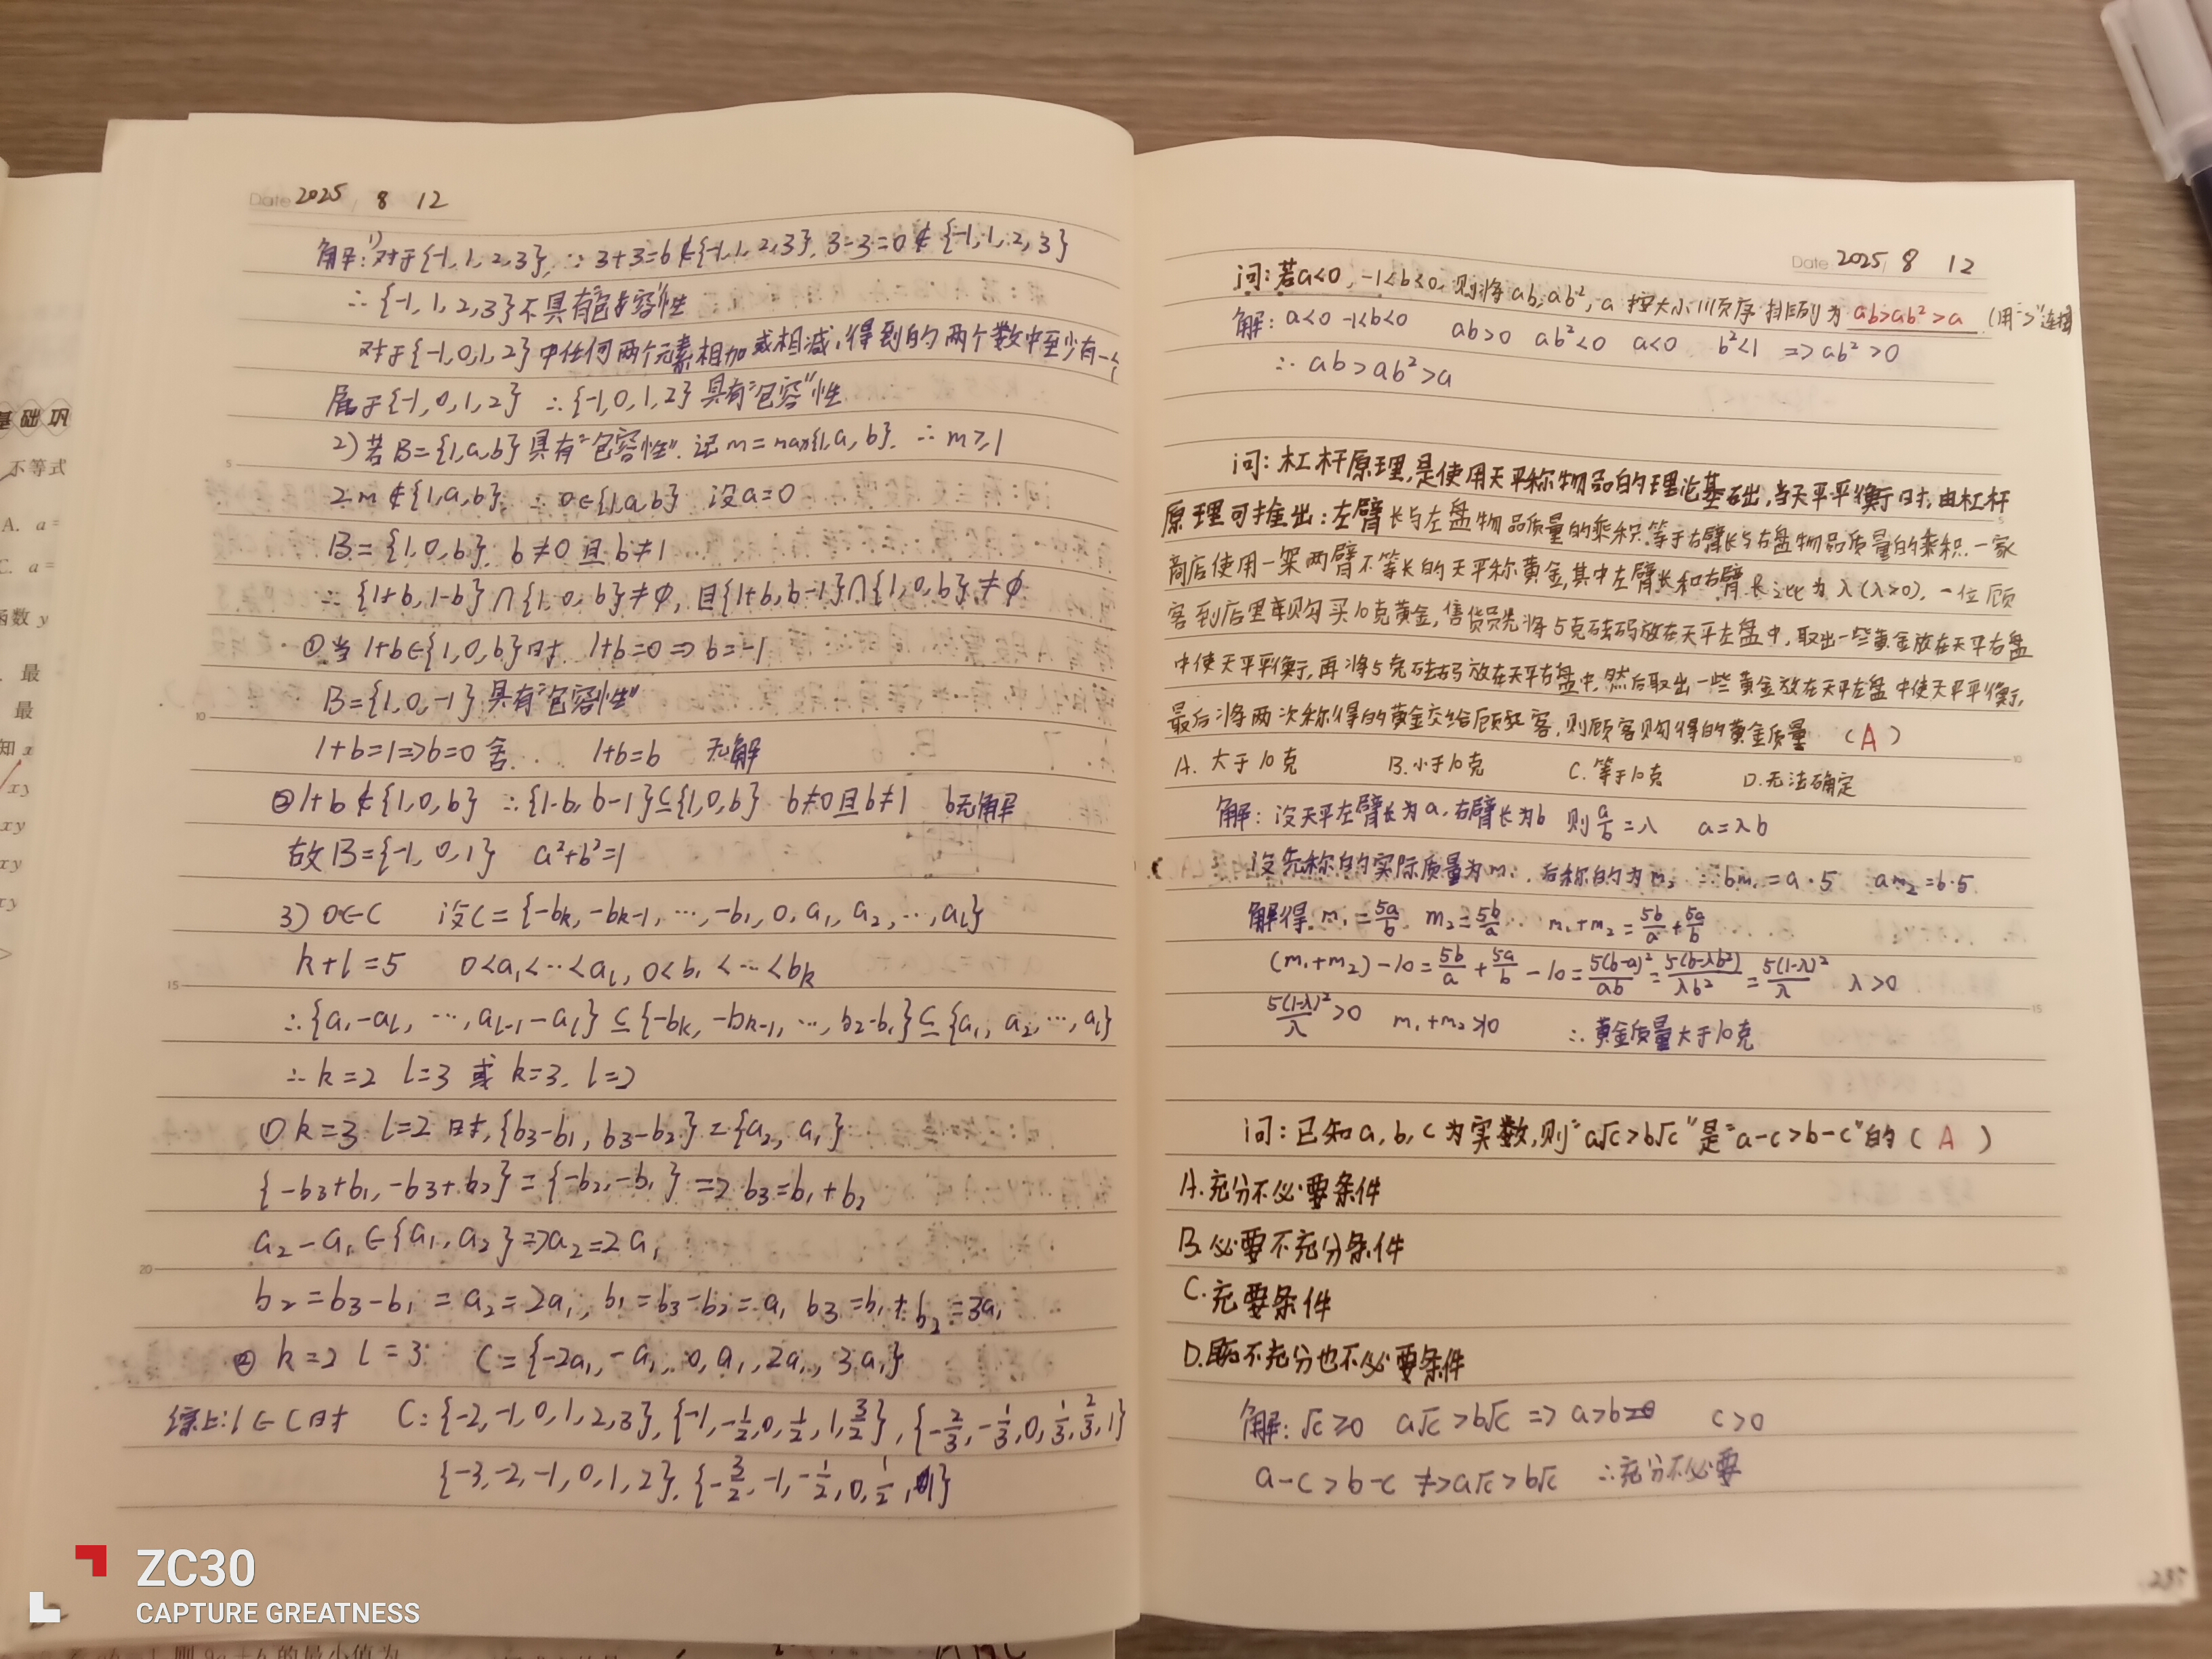 Date 2025 8 12
解:1)对于{-1,1,2,3}, ∵3+3=6∉{-1,1,2,3}, 3-3=0∉{-1,1,2,3}
∴{-1,1,2,3}不具有"包容"性
对于{-1,0,1,2}中任何两个元素相加或相减,得到的两个数中至少有一个
属于{-1,0,1,2} ∴{-1,0,1,2}具有"包容"性
2)若B={1,a,b}具有"包容性". 记m=max{1,a,b}. ∴m≥1
2m∉{1,a,b}. ∴0∈{1,a,b} 设a=0
B={1,0,b}. b≠0且b≠1
∴{1+b,1-b}∩{1,0,b}≠∅, 且{1+b,b-1}∩{1,0,b}≠∅
①当1+b∈{1,0,b}时 1+b=0⇒b=-1
B={1,0,-1}具有"包容性"
1+b=1⇒b=0舍. 1+b=b 无解
②1+b∉{1,0,b} ∴{1-b,b-1}⊆{1,0,b} b≠0且b≠1 b无解
故B={-1,0,1} a²+b²=1
3)0∈C 设C={-bk,-bk-1,…,-b1,0,a1,a2,…,al}
k+l=5 0<a1<…<al,0<b1<…<bk
∴{a1-al,…,al-1-al}⊆{-bk,-bk-1,…,b2-b1}⊆{a1,a2,…,al}
∴k=2 l=3 或 k=3. l=2
①k=3 l=2时,{b3-b1,b3-b2}={a2,a1}
{-b3+b1,-b3+b2}={-b2,-b1}⇒b3=b1+b2
a2-a1∈{a1,a2}⇒a2=2a1
b2=b3-b1=a2=2a1, b1=b3-b2=a1 b3=b1+b2=3a1
②k=2 l=3 C={-2a1,-a1,0,a1,2a1,3a1}
综上:1∈C时 C={-2,-1,0,1,2,3},{-1,-1/2,0,1/2,1,3/2},{-2/3,-1/3,0,1/3,2/3,1}
{-3,-2,-1,0,1,2},{-3/2,-1,-1/2,0,1/2,1}
Date 2025 8 12
问:若a<0,-1<b<0,则将ab,ab²,a按大小顺序排列为 ab>ab²>a (用">"连接
解:a<0 -1<b<0 ab>0 ab²<0 a<0 b²<1 ⇒ab²>0
∴ab>ab²>a
问:杠杆原理,是使用天平称物品的理论基础,当天平平衡时,由杠杆
原理可推出:左臂长与左盘物品质量的乘积等于右臂长与右盘物品质量的乘积.一家
商店使用一架两臂不等长的天平称黄金,其中左臂长和右臂长之比为λ(λ>0).一位顾
客到店里购买10克黄金,售货员先将5克砝码放在天平左盘中,取出一些黄金放在天平右盘
中使天平平衡,再将5克砝码放在天平右盘中,然后取出一些黄金放在天平左盘中使天平平衡,
最后将两次称得的黄金交给顾客,则顾客购得的黄金质量 (A)
A.大于10克 B.小于10克 C.等于10克 D.无法确定
解:设天平左臂长为a,右臂长为b 则a/b=λ a=λb
设先称的实际质量为m1,后称的为m2 ∴bm1=a·5 am2=b·5
解得.m1=5a/b m2=5b/a m1+m2=5b/a+5a/b
(m1+m2)-10=5b/a+5a/b-10=5(b-a)²/ab=5(b-λb²)/λb²=5(1-λ)²/λ λ>0
5(1-λ)²/λ>0 ∴黄金质量大于10克
问:已知a,b,c为实数,则"a√c>b√c"是"a-c>b-c"的(A)
A.充分不必要条件
B.必要不充分条件
C.充要条件
D.既不充分也不必要条件
解:√c≥0 a√c>b√c⇒a>b c>0
a-c>b-c ⇏a√c>b√c ∴充分不必要
基础巩
不等式
A. a=
C. a=
函数y
最
最
知x
xy
xy
xy
xy
ZC30
CAPTURE GREATNESS